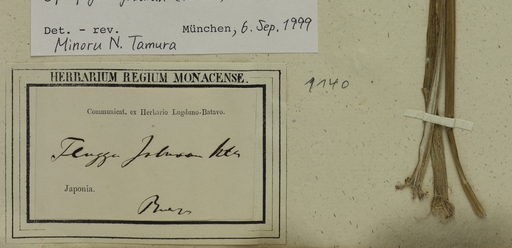 Det. - rev. München, 6. Sep. 1999
Minoru N. Tamura
HERBARIUM REGIUM MONACENSE.
1140
Communicat. ex Herbario Lugduno-Batavo.
Flugga
Japonia.